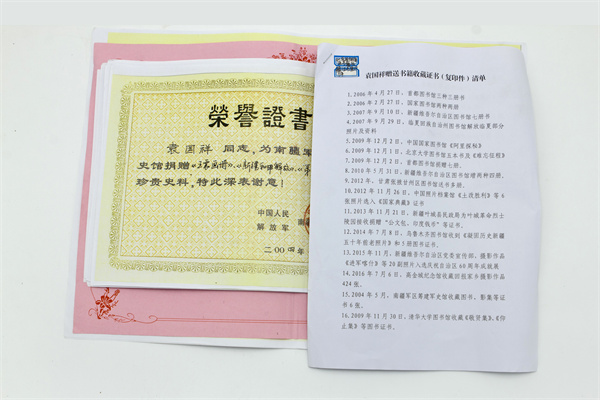 榮譽證書
袁国祥 同志,为南疆军
史馆捐赠
珍贵史料,特此深表谢意!
中国人民
解放军
南
二00四年
袁国祥赠送书籍收藏证书(复印件)清单
1.2006年4月27日,首都图书馆三种三册书
2.2006年2月27日,国家图书馆两种两册
3.2007年9月10日,新疆维吾尔自治区图书馆七册书
4.2007年9月29日,临夏回族自治州图书馆解放临夏部分
照片及资料
5.2009年12月2日,中国国家图书馆《阿里探秘》
6.2009年12月1日,北京大学图书馆五本书及《难忘征程》
7.2009年12月2日,首都图书馆赠七册.
8.2010年5月31日,新疆维吾尔自治区图书馆增两种四册.
9.2012年,甘肃张掖甘州区图书馆送书多册.
10.2012年11月26日,中国照片档案馆《土改胜利》等6
张照片选入《国家典藏》证书
11.2013年11月21日,新疆叶城县民政局为叶城革命烈士
陵园接收捐赠"公文包、印度钱币"等证书.
12.2014年7月8日,乌鲁木齐图书馆收到《凝固历史新疆
五十年前老照片》和5册图书证书.
13.2015年11月,新疆维吾尔自治区党委宣传部,摄影作品
《进军喀什》等20副照片入选庆祝自治区60周年成就展
14.2016年7月6日,高金城纪念馆收藏回祖家乡摄影作品
424张.
15.2004年5月,南疆军区筹建军史馆收藏图书、影集等证
书6张.
16.2009年11月30日,清华大学图书馆收藏《敬贤集》、《仰
止集》等图书证书.